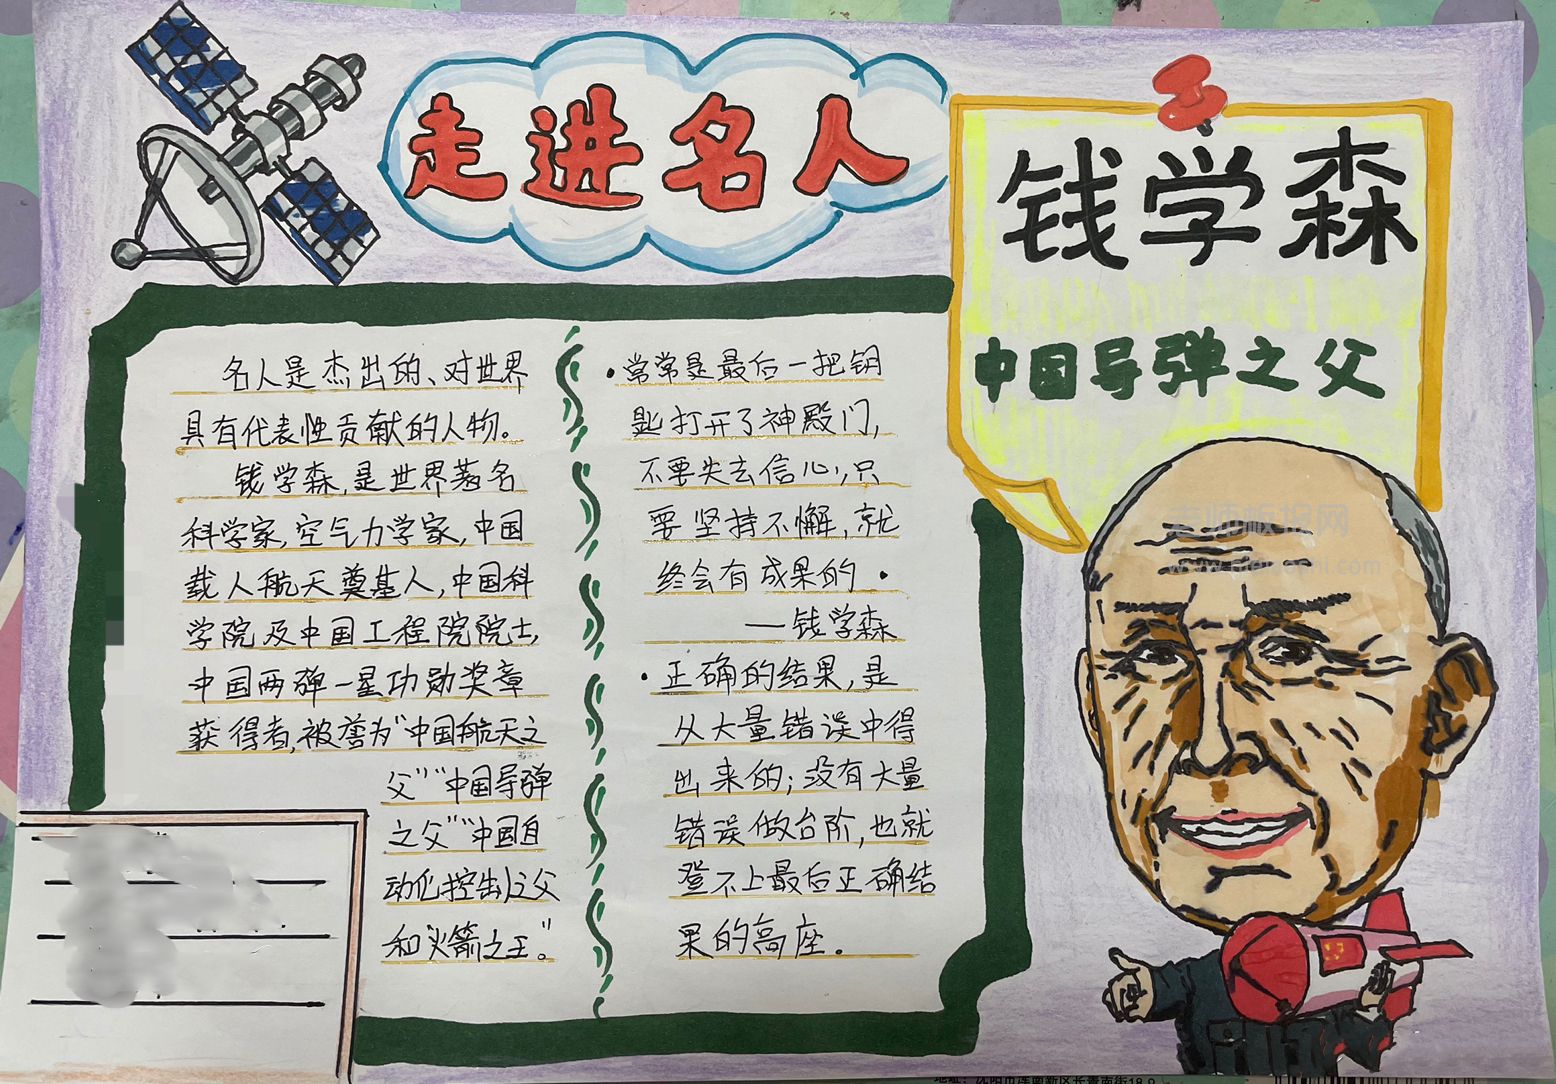 走进名人
钱学森
中国导弹之父
名人是杰出的、对世界
具有代表性贡献的人物。
钱学森,是世界著名
科学家,空气力学家,中国
载人航天奠基人,中国科
学院及中国工程院院士,
中国两弹一星功勋奖章
获得者,被誉为“中国航天之
父”“中国导弹
之父”“中国自
动化控制之父
和火箭之王”。
·常常是最后一把钥
匙打开了神殿门,
不要失去信心,只
要坚持不懈,就
终会有成果的·
—钱学森
·正确的结果,是
从大量错误中得
出来的;没有大量
错误做台阶,也就
登不上最后正确结
果的高座。
老师板报网